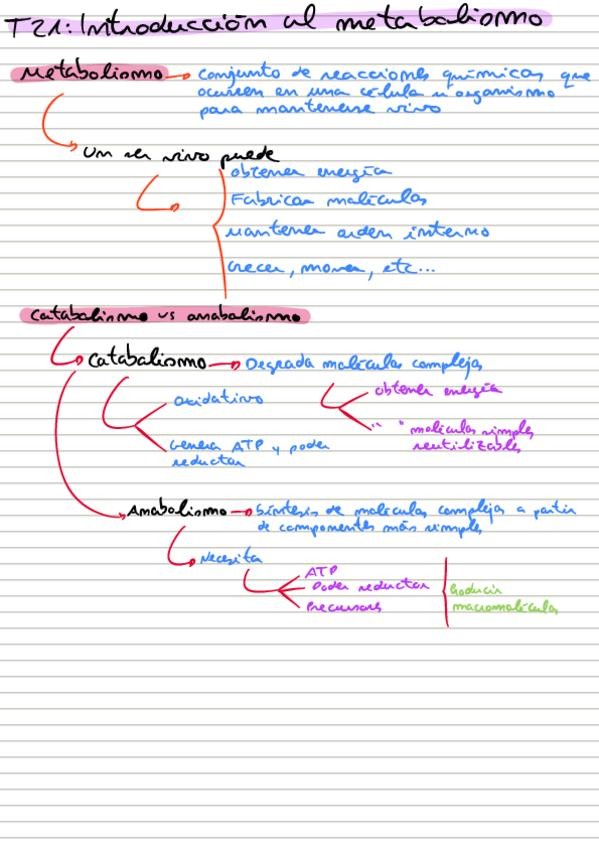 T21: Introducción al metabolismo
Metabolismo → conjunto de reacciones químicas que
ocurren en una célula u organismo
para mantenerse vivo
Un ser vivo puede
obtener energía
Fabricar moléculas
Mantener orden interno
crecer, mover, etc...
Catabolismo vs anabolismo
Catabolismo → Degrada moléculas complejas
obtener energía
" " moléculas simples
reutilizables
Oxidativo
Genera ATP y poder
reductor
Anabolismo → Síntesis de moléculas complejas a partir
de componentes más simples
Necesita
ATP
Poder reductor
Precursores
Producir
macromoléculas